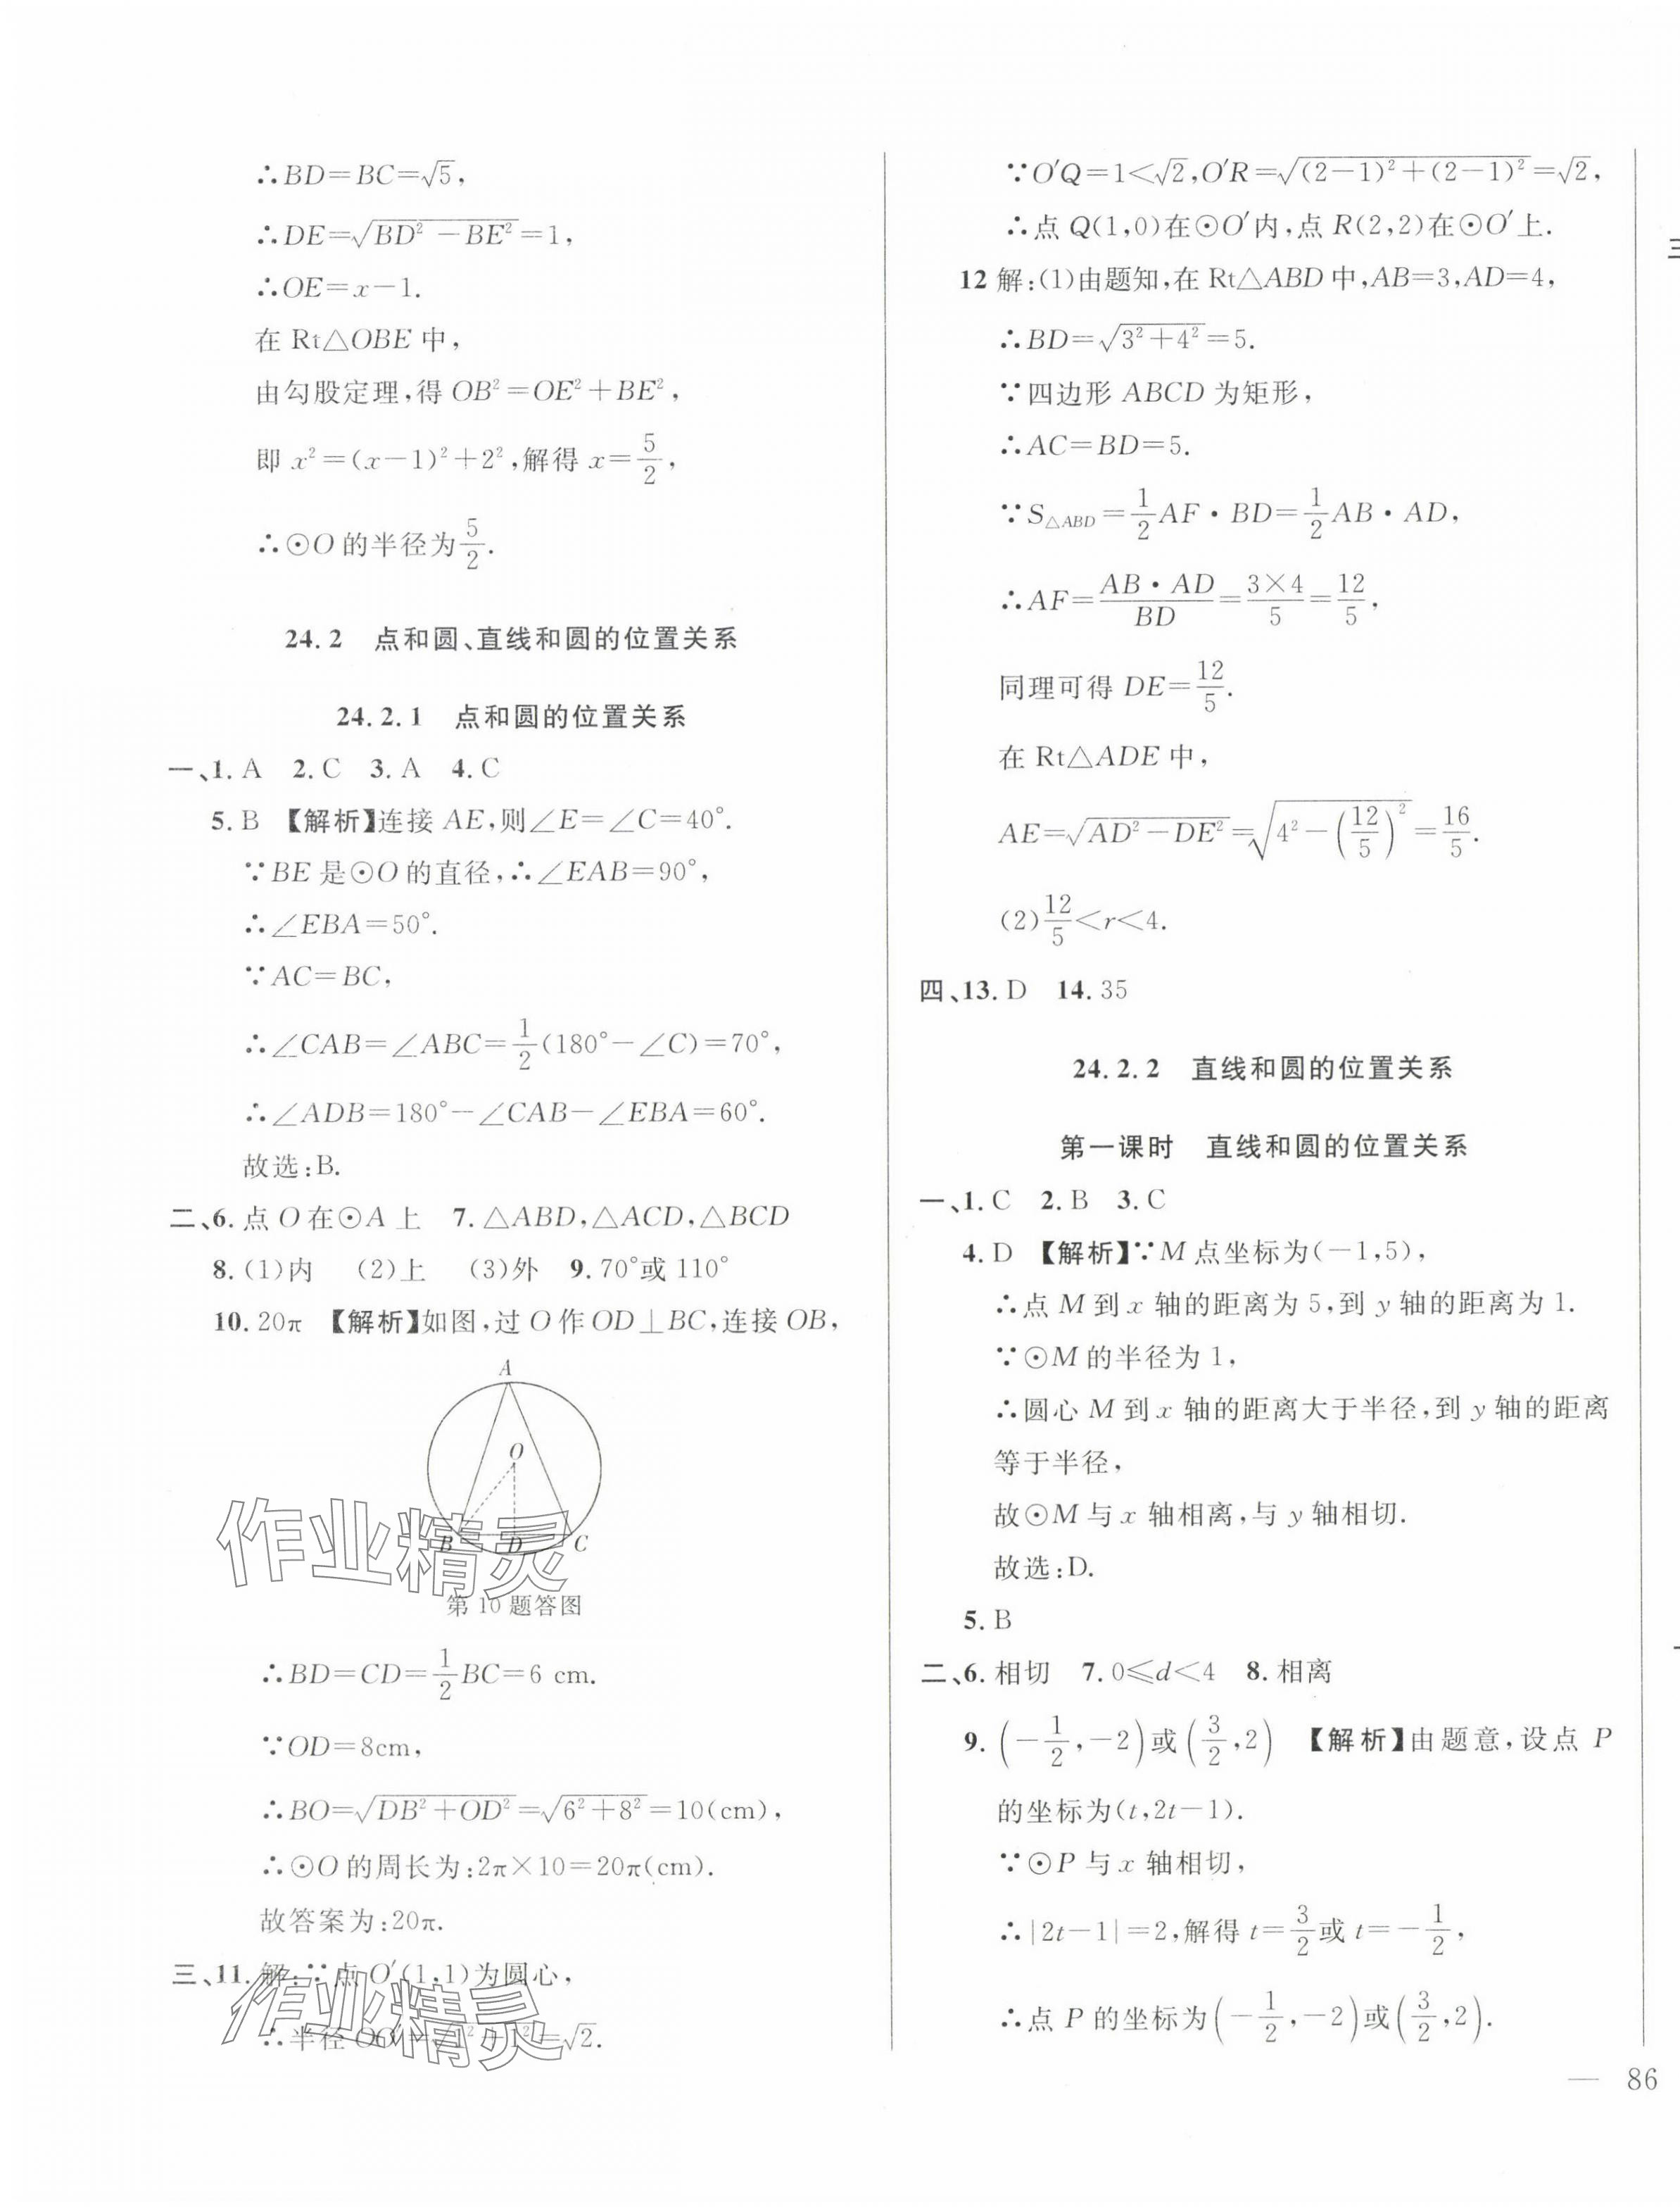 ∴BD=BC=√5,
∴DE=√(BD²-BE²)=1,
∴OE=x-1.
在 Rt△OBE 中,
由勾股定理,得 OB²=OE²+BE²,
即 x²=(x-1)²+2²,解得 x=5/2,
∴⊙O 的半径为5/2.
24.2 点和圆、直线和圆的位置关系
24.2.1 点和圆的位置关系
一、1. A 2. C 3. A 4. C
5. B 【解析】连接 AE,则∠E=∠C=40°.
∵BE 是⊙O 的直径,∴∠EAB=90°,
∴∠EBA=50°.
∵AC=BC,
∴∠CAB=∠ABC=1/2(180°-∠C)=70°,
∴∠ADB=180°-∠CAB-∠EBA=60°.
故选:B.
二、6. 点 O 在⊙A 上 7. △ABD,△ACD,△BCD
8. (1)内 (2)上 (3)外 9. 70°或 110°
10. 20π 【解析】如图,过 O 作 OD⊥BC,连接 OB,
A
O
B D C
第 10 题答图
∴BD=CD=1/2BC=6 cm.
∵OD=8cm,
∴BO=√(DB²+OD²)=√(6²+8²)=10(cm),
∴⊙O 的周长为:2π×10=20π(cm).
故答案为:20π.
三、11. 解:∵点 O′(1,1)为圆心,
∴半径 OO′=√(1²+1²)=√2.
∵O′Q=1<√2,O′R=√((2-1)²+(2-1)²)=√2,
∴点 Q(1,0)在⊙O′内,点 R(2,2)在⊙O′上.
12 解:(1)由题知,在 Rt△ABD 中,AB=3,AD=4,
∴BD=√(3²+4²)=5.
∵四边形 ABCD 为矩形,
∴AC=BD=5.
∵S△ABD=1/2AF·BD=1/2AB·AD,
∴AF=(AB·AD)/BD=(3×4)/5=12/5,
同理可得 DE=12/5.
在 Rt△ADE 中,
AE=√(AD²-DE²)=√(4²-(12/5)²)=16/5.
(2)12/5<r<4.
四、13. D 14. 35
24.2.2 直线和圆的位置关系
第一课时 直线和圆的位置关系
一、1. C 2. B 3. C
4. D 【解析】∵M 点坐标为(-1,5),
∴点 M 到 x 轴的距离为 5,到 y 轴的距离为 1.
∵⊙M 的半径为 1,
∴圆心 M 到 x 轴的距离大于半径,到 y 轴的距离
等于半径,
故⊙M 与 x 轴相离,与 y 轴相切.
故选:D.
5. B
二、6. 相切 7. 0≤d<4 8. 相离
9. (-1/2,-2)或(3/2,2) 【解析】由题意,设点 P
的坐标为(t,2t-1).
∵⊙P 与 x 轴相切,
∴|2t-1|=2,解得 t=3/2或 t=-1/2,
∴点 P 的坐标为(-1/2,-2)或(3/2,2).
— 86
作业精灵
作业精灵